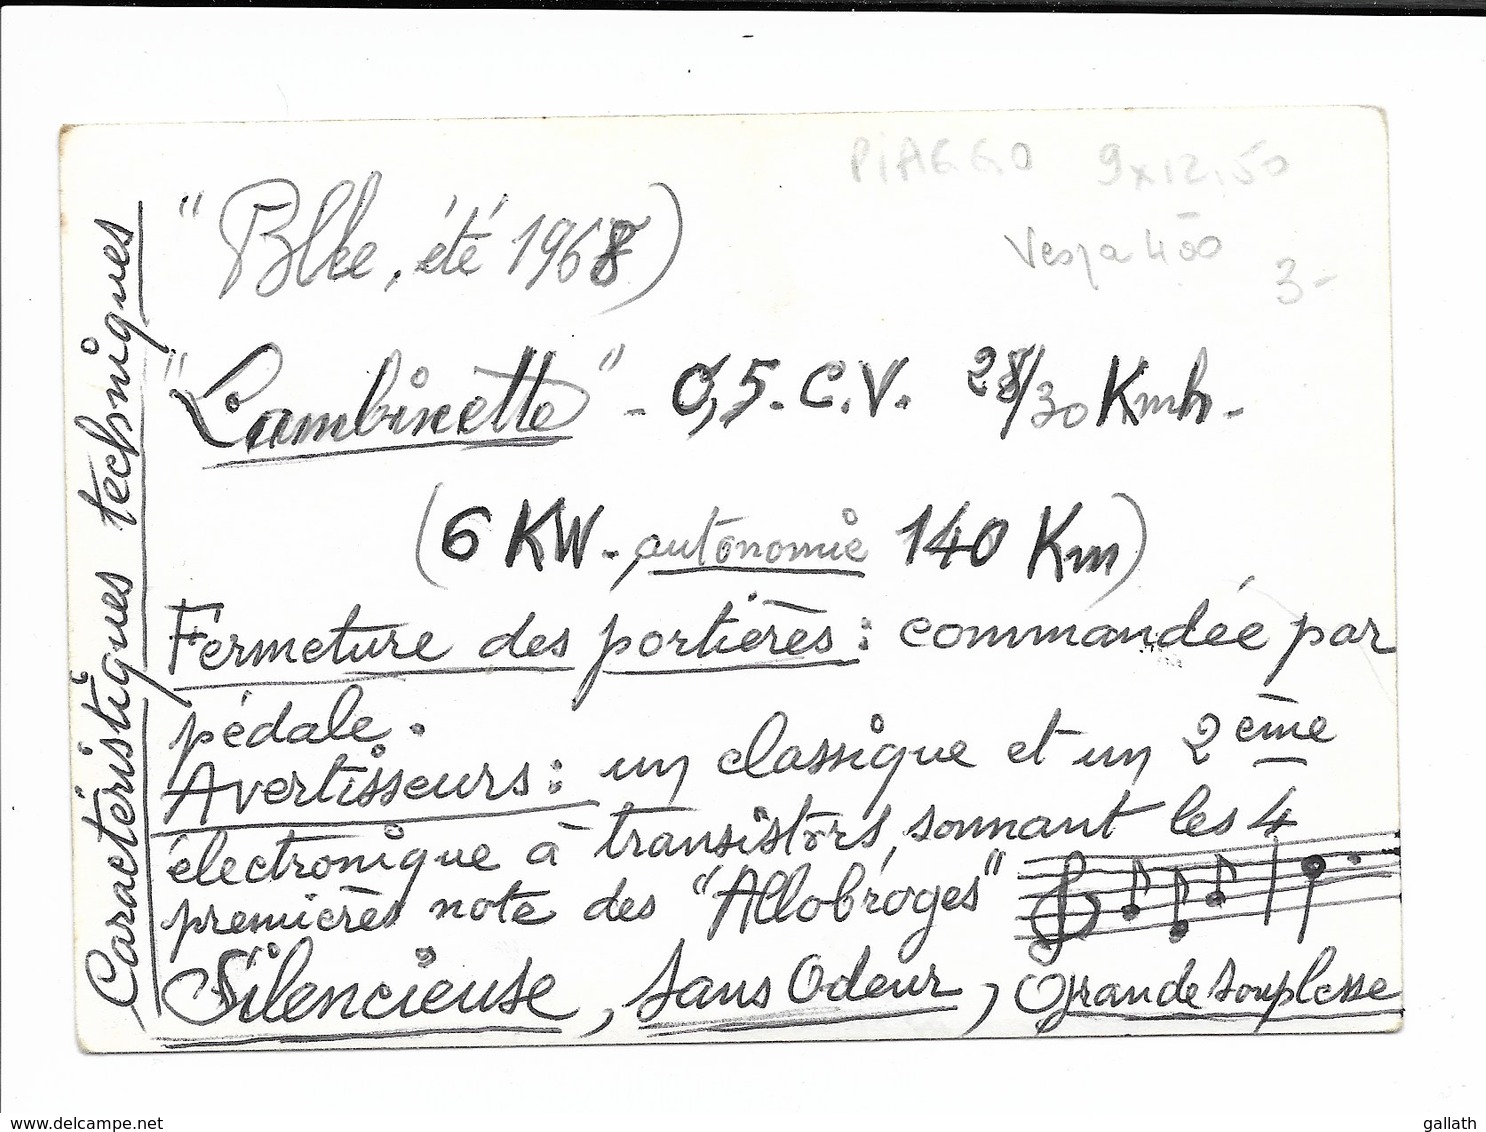 PIAGGO 9x12,50
Vespa 400
3-
"Blle, été 1968)
"Lambinette" - 0,5. C.V. 28/30 Kmh -
(6 KW. autonomie 140 Km)
Fermeture des portières : commandée par
pédale.
Avertisseurs : un classique et un 2ème
électronique à transistors, sonnant les 4
premières note des "Allobroges"
Silencieuse, sans Odeur, Grande souplesse
Caractéristiques techniques
www.delcampe.net
gallath